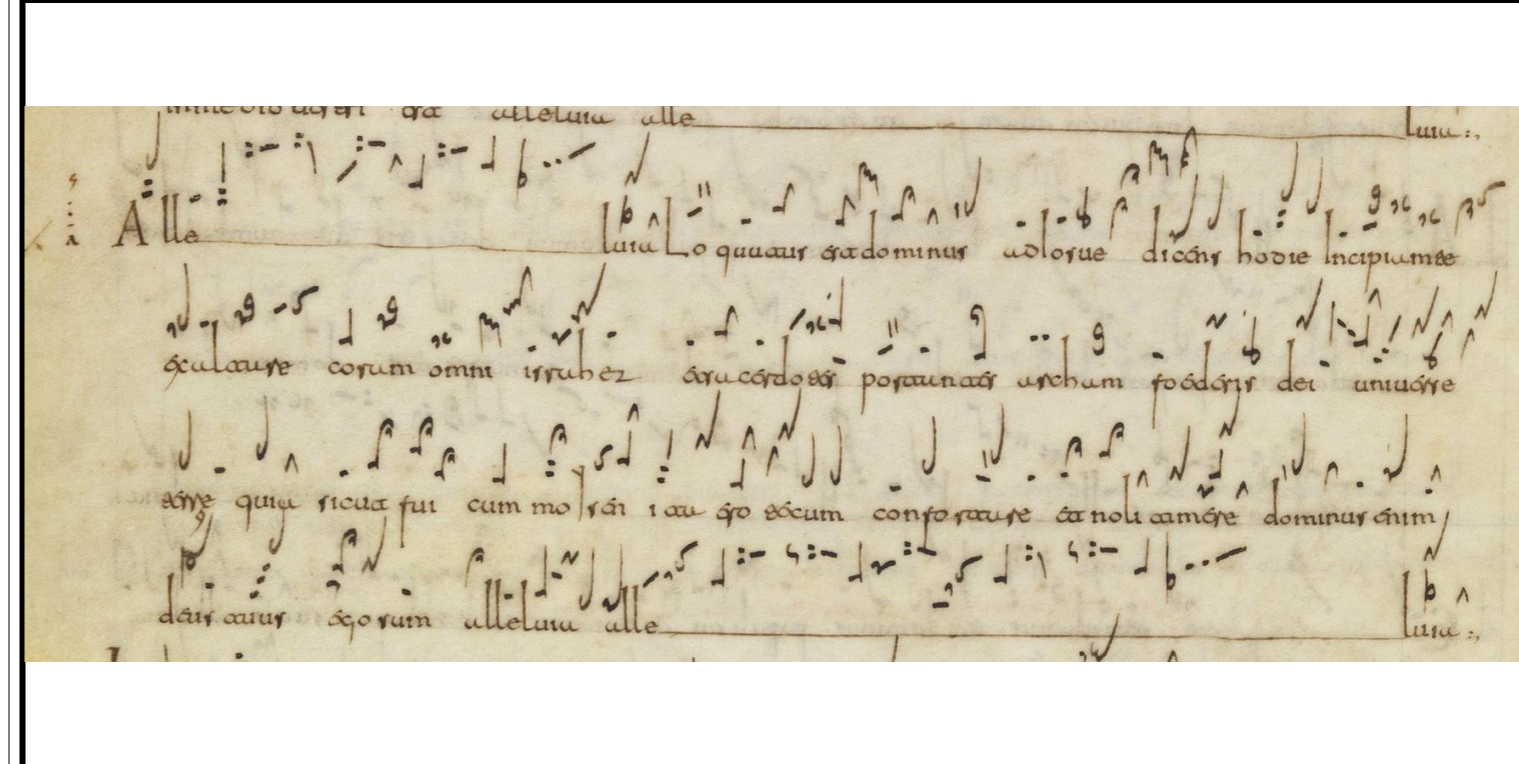 alleluia alle luia
Alle luia Loquutus est dominus ad Iosue dicens hodie Incipiam te
exaltare coram omni israhel et sacerdotes portantes archam foederis dei uniuerse
terre quia sicut fui cum moysen ita ero tecum confortare et noli timere dominus enim
deus tuus ego sum alleluia alle luia